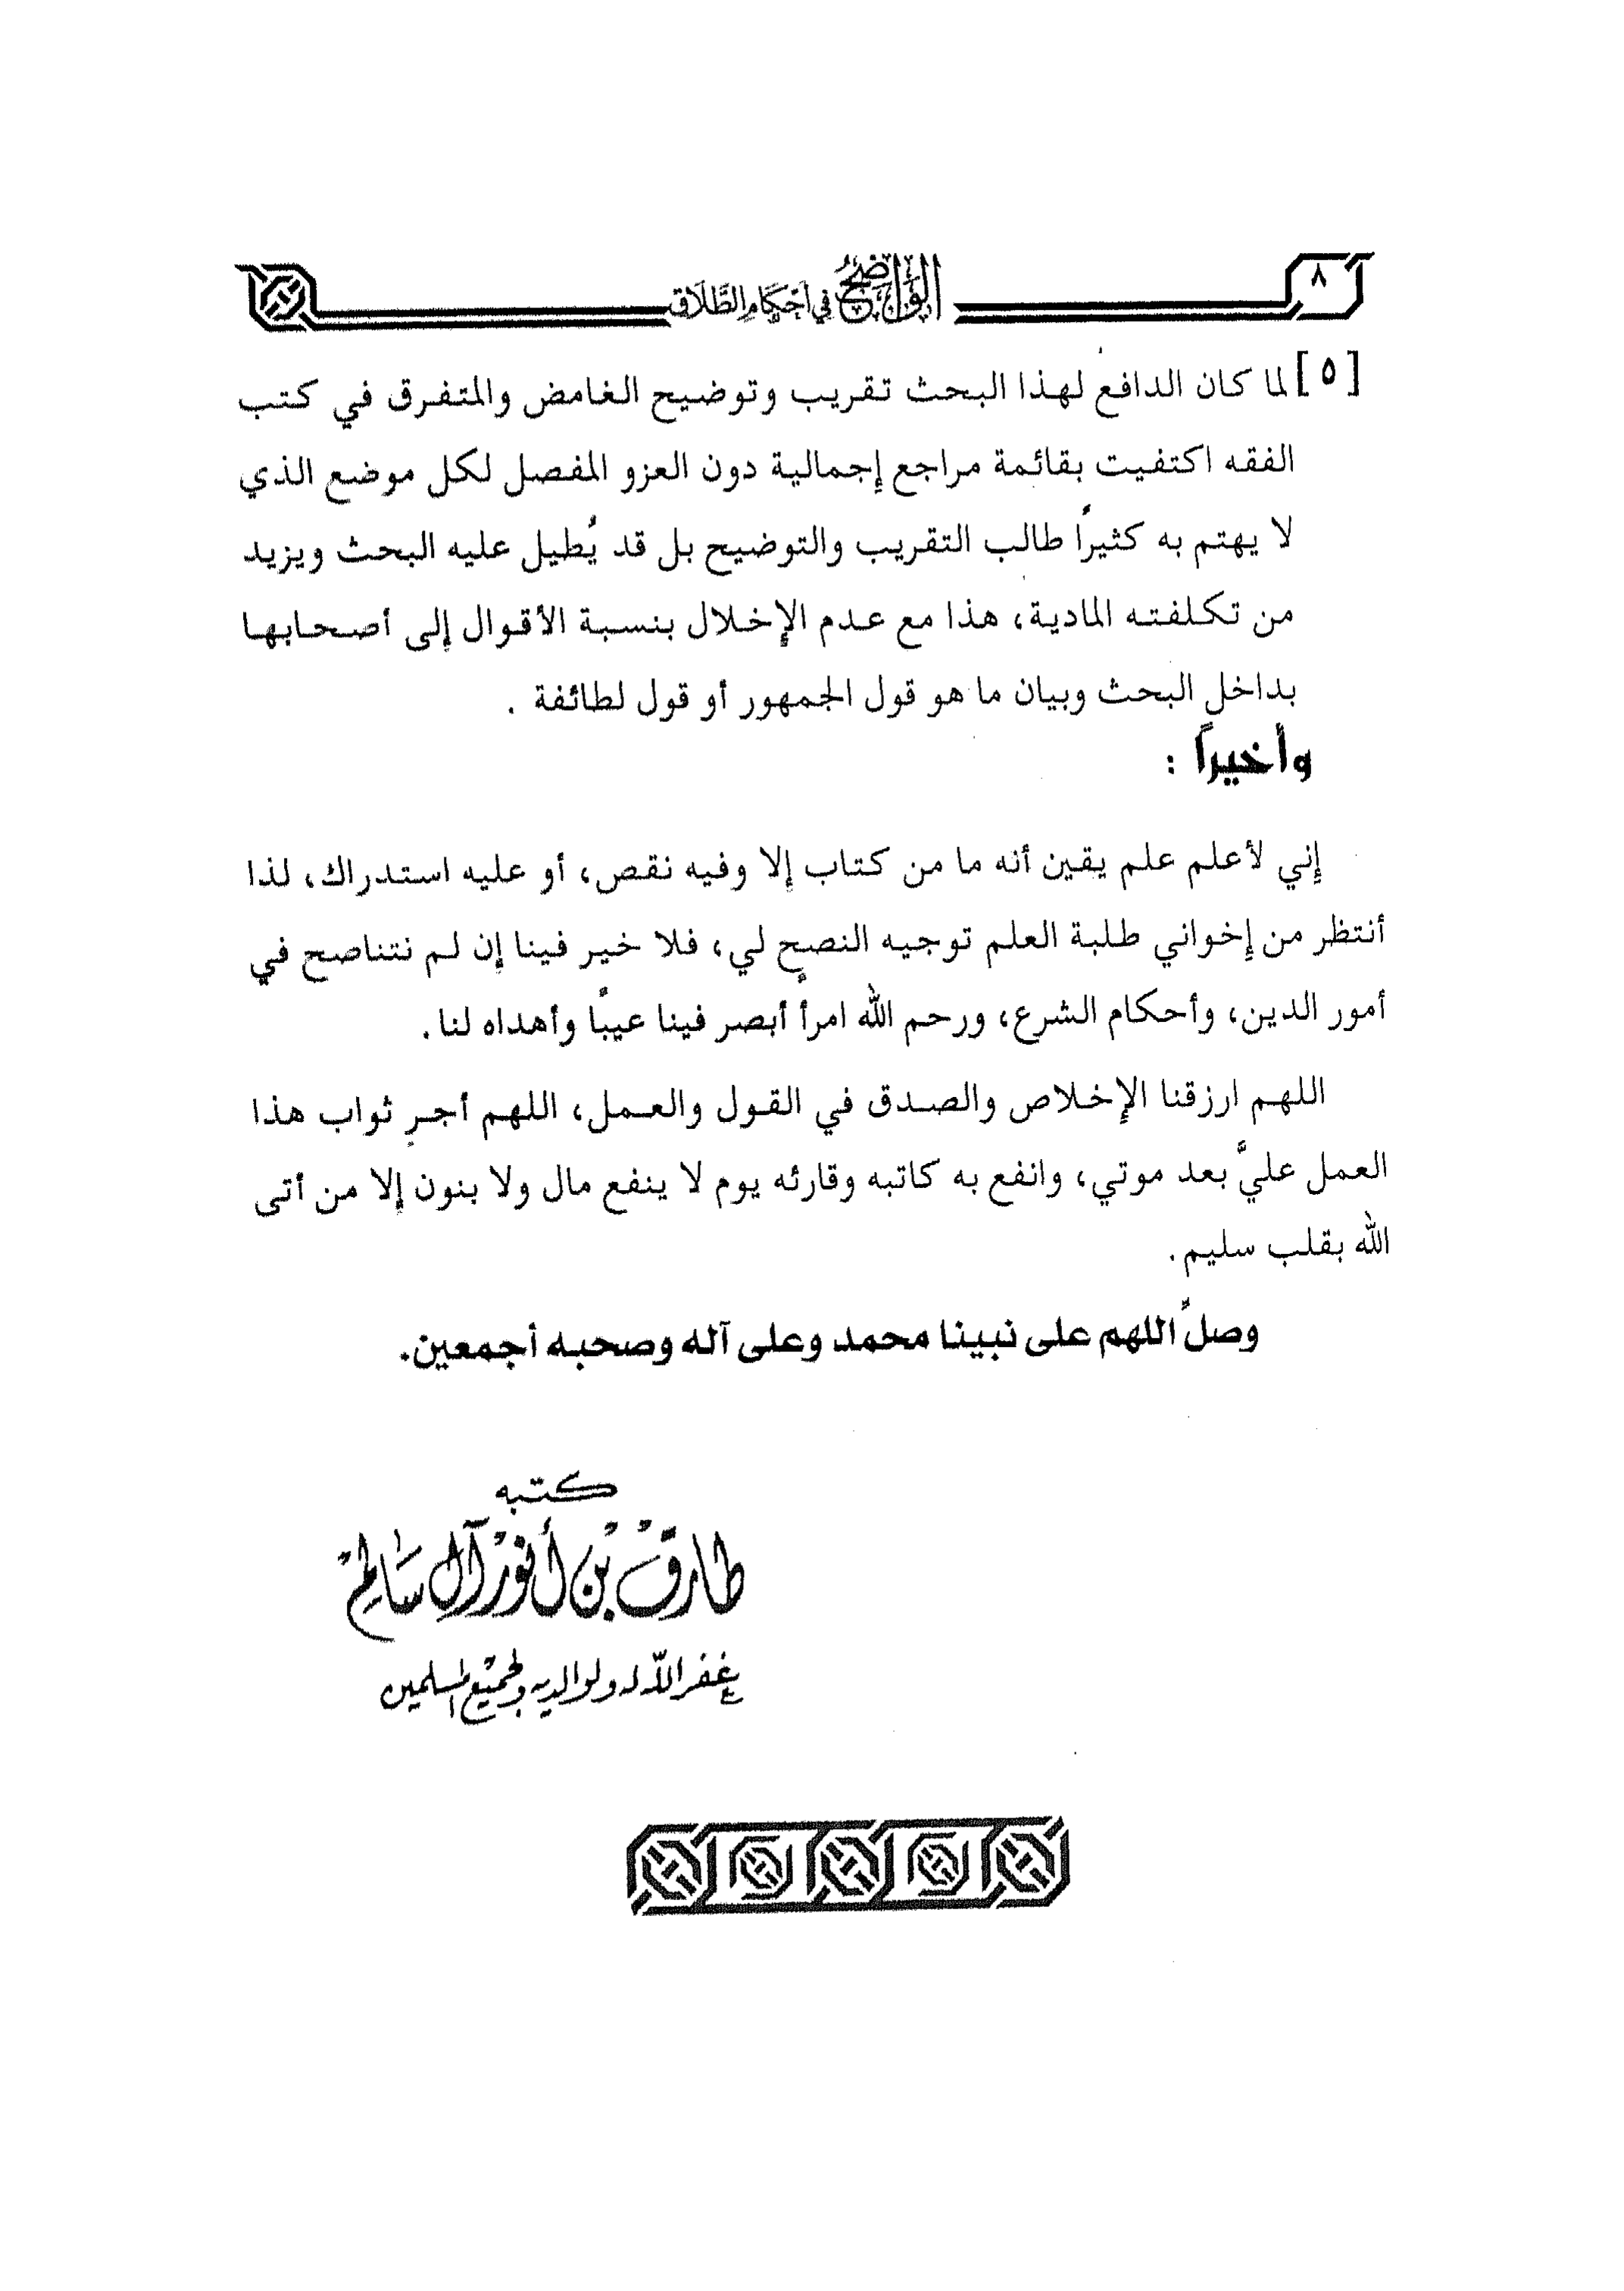 ٨
الواضح في أحكام الطلاق
[٥] لما كان الدافع لهذا البحث تقريب وتوضيح الغامض والمتفرق في كتب
الفقه اكتفيت بقائمة مراجع إجمالية دون العزو المفصل لكل موضع الذي
لا يهتم به كثيراً طالب التقريب والتوضيح بل قد يُطيل عليه البحث ويزيد
من تكلفته المادية، هذا مع عدم الإخلال بنسبة الأقوال إلى أصحابها
بداخل البحث وبيان ما هو قول الجمهور أو قول لطائفة .
وأخيراً :
إني لأعلم علم يقين أنه ما من كتاب إلا وفيه نقص، أو عليه استدراك، لذا
أنتظر من إخواني طلبة العلم توجيه النصح لي، فلا خير فينا إن لم نتناصح في
أمور الدين، وأحكام الشرع، ورحم الله امرأً أبصر فينا عيبًا وأهداه لنا.
اللهم ارزقنا الإخلاص والصدق في القول والعمل، اللهم أجرِ ثواب هذا
العمل عليَّ بعد موتي، وانفع به كاتبه وقارئه يوم لا ينفع مال ولا بنون إلا من أتى
الله بقلب سليم.
وصلِّ اللهم على نبينا محمد وعلى آله وصحبه أجمعين.
كتبه
طارق بن أنور آل سالم
غفر الله له ولوالديه ولجميع المسلمين